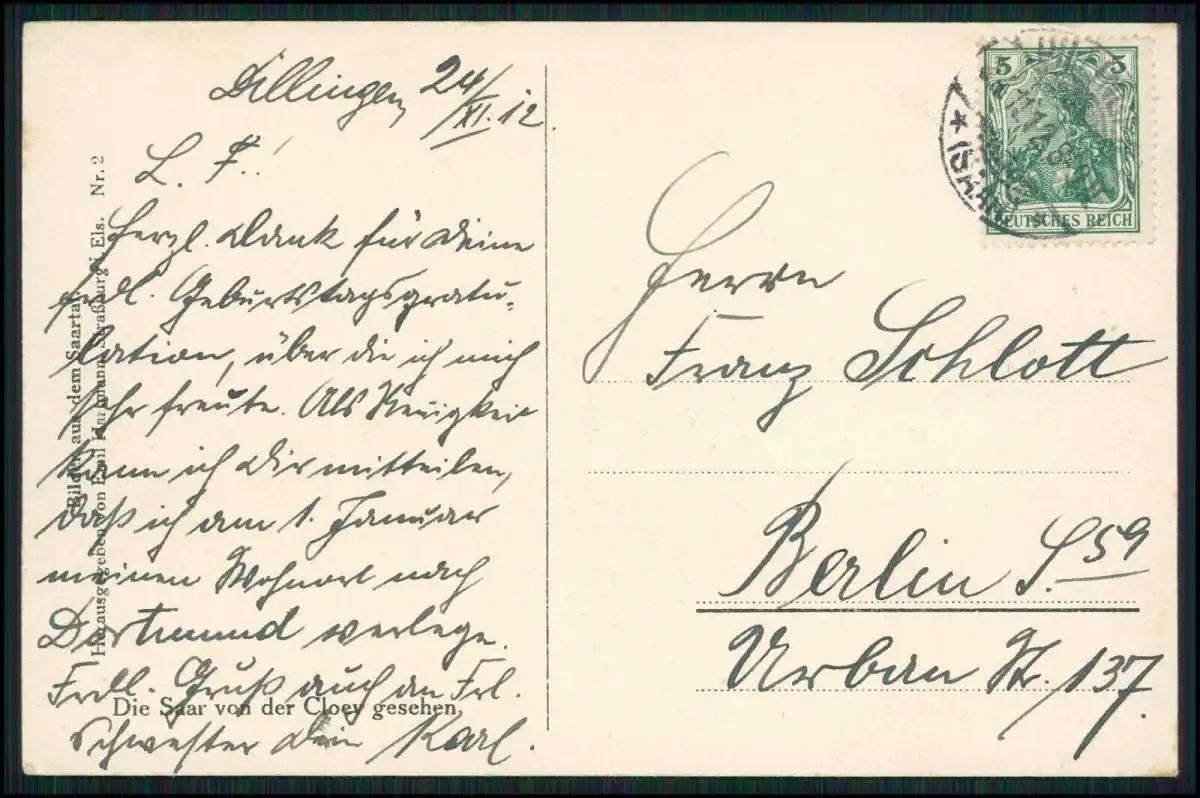 Dillingen 24/XI. 12.
L. F.!
Herzl. Dank für Deine
frdl. Geburtstagsgratu-
lation, über die ich mich
sehr freute. Als Neuigkeit
kann ich Dir mitteilen,
daß ich am 1. Januar
meinen Wohnort nach
Dortmund verlege.
Frdl. Gruß auch an Frl.
Schwester Dein Karl.
Bilder aus dem Saartal
Herausgegeben von Emil Hartmann, Straßburg i. Els. Nr. 2
Die Saar von der Cloey gesehen.
5 5
DEUTSCHES REICH
* (SAAR)
Herrn
Franz Schlott
Berlin S. 59
Urban Str. 137.